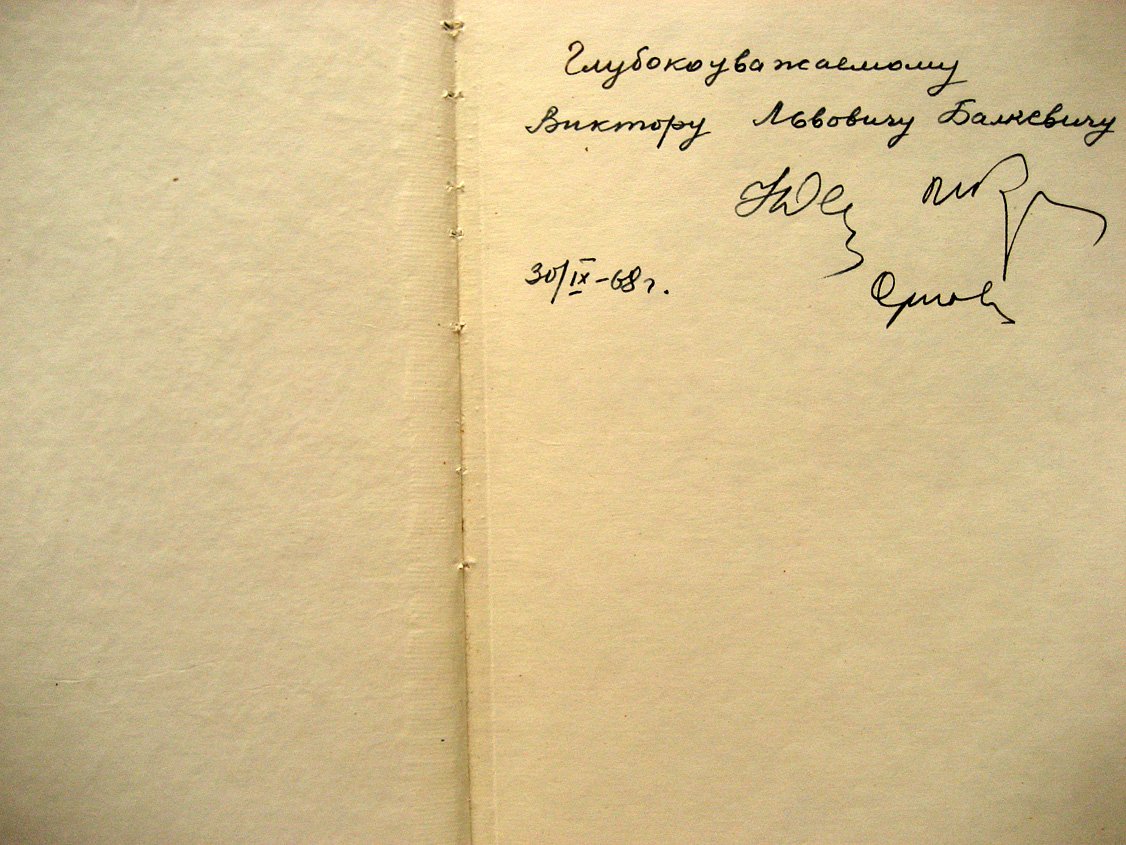 Глубокоуважаемому
Виктору Львовичу Балкевичу
30/IX-68 г.